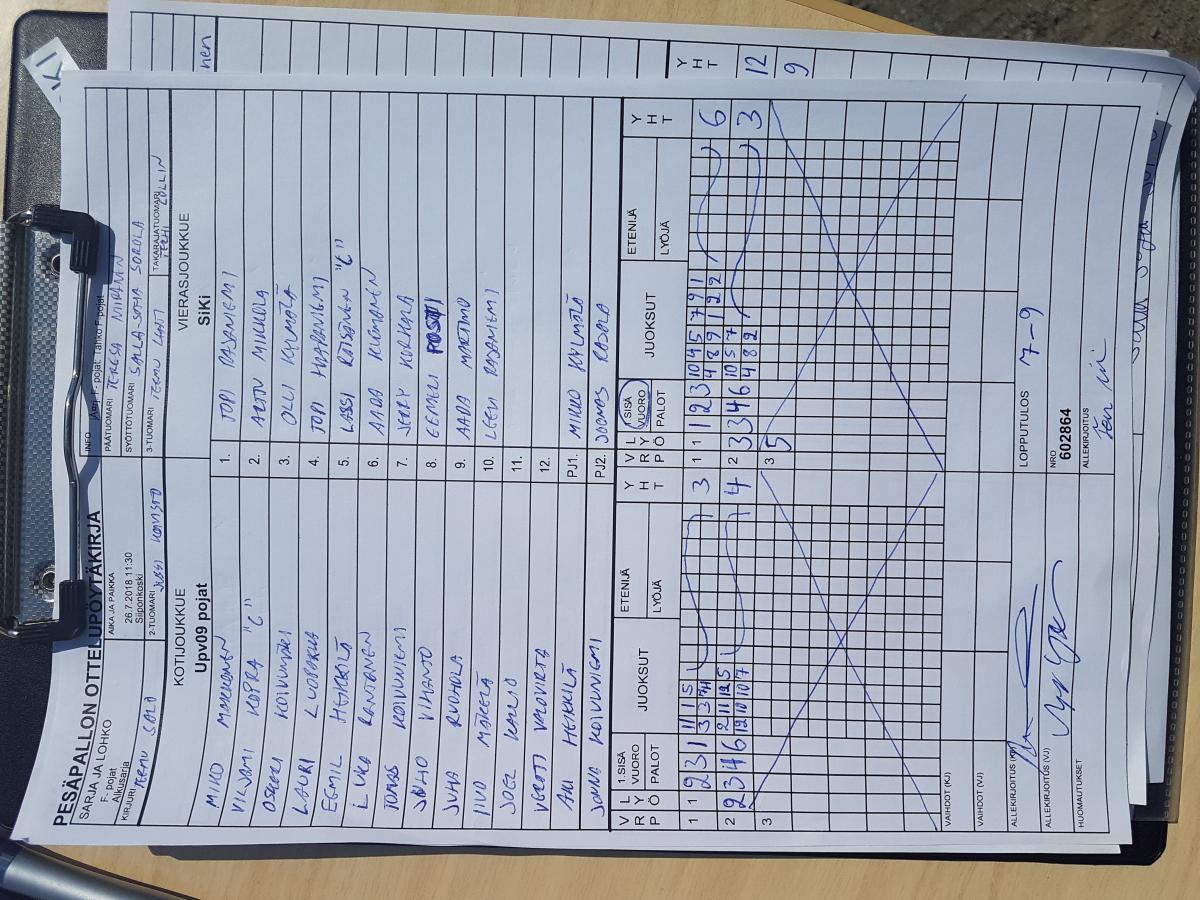 PESÄPALLON OTTELUPÖYTÄKIRJA
SARJA JA LOHKO
F- pojat
Alkusarja
AIKA JA PAIKKA
26.7.2018 11:30
Siiponkoski
INFO
F- pojat: Tahko F-pojat
PÄÄTUOMARI TERESA
SYÖTTÖTUOMARI SALA-SOHA SOROLA
KIRJURI TEEMU SALO
2-TUOMARI JUSSI KOIVISTO
3-TUOMARI TEEMU LANTI
TAKARAJATUOMARI
KOTIJOUKKUE
Upv09 pojat
VIERASJOUKKUE
SiKi
MIKO MAKKONEN 1. TOPI RAJANIEMI
VILJAMI KOPRA "C" 2. ARTTU MIKKOLA
OSKARI KOIVUMÄKI 3. OLLI KYLMÄLÄ
LAURI LUOPAKKA 4. TOPI HAAPANIEMI
EEMIL HEIKKILÄ 5. LASSI ROISANEN "C"
LUKA RANTANEN 6. AADA
TUOMAS KOIVUNIEMI 7. JERRY KORKALA
JUHO VIHANTO 8. EEMELI
JUHA RUOHOLA 9. AADA MARTIMO
IIVO MÄKELÄ 10. LEEVI RAJANIEMI
JOEL KALLIO 11.
VERTTI VALOVIRTA 12.
AKI HEIKKILÄ PJ1. MIKKO KYLMÄLÄ
JONNA KOIVUNIEMI PJ2. JOONAS RASALA
V R P L Y Ö 1.SISÄ VUORO PALOT JUOKSUT ETENIJÄ LYÖJÄ Y H T V R P L Y Ö 1.SISÄ VUORO PALOT JUOKSUT ETENIJÄ LYÖJÄ Y H T
1 1 2 3 1 11 1 5 3 1 1 1 2 3 10 4 5 7 9 1 6
3 3 4 8 9 1 2 2
2 2 3 4 6 2 11 12 5 4 2 3 3 4 6 10 5 7 3
12 10 10 7 4 8 2
3 3 5
VAIHDOT (KJ)
VAIHDOT (VJ)
ALLEKIRJOITUS (KJ)
ALLEKIRJOITUS (VJ)
HUOMAUTUKSET
LOPPUTULOS 7-9
NRO
602864
ALLEKIRJOITUS
nen
Y H T
12
9